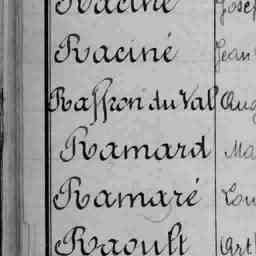 Racine Josep
Raciné Jean
Raffron du Val Aug
Ramard Ma
Ramaré Lou
Raoult Art